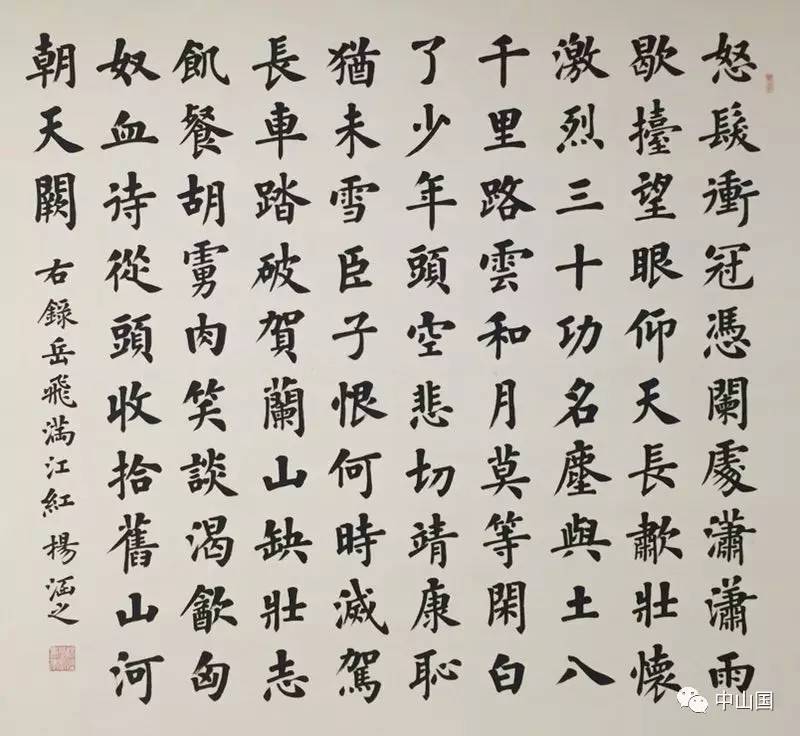 怒髮衝冠憑闌處瀟瀟雨
歇擡望眼仰天長歗壯懷
激烈三十功名塵與土八
千里路雲和月莫等閑白
了少年頭空悲切靖康恥
猶未雪臣子恨何時滅駕
長車踏破賀蘭山缺壯志
飢餐胡虜肉笑談渴㱃匈
奴血待從頭收拾舊山河
朝天闕
右錄岳飛滿江紅 楊涵之
中山国